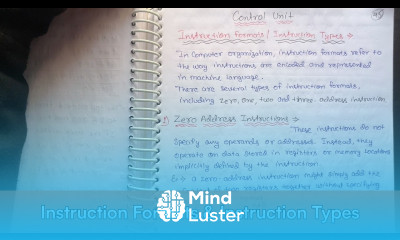 Control Unit
Instruction Formats / Instruction Types :-
"In Computer organization, instruction formats refer to
the way instructions are encoded and represented
in machine language.
"There are several types of instruction formats,
including zero, one, two and three address instruction
1) Zero Address Instructions :-
These instructions do not
specify any operands or addresses. Instead, they
operate on data stored in registers or memory locations
implicitly defined by the instruction.
a zero-address instruction might simply add the
registers together without specifying
Mind
Luster
Instruction Types